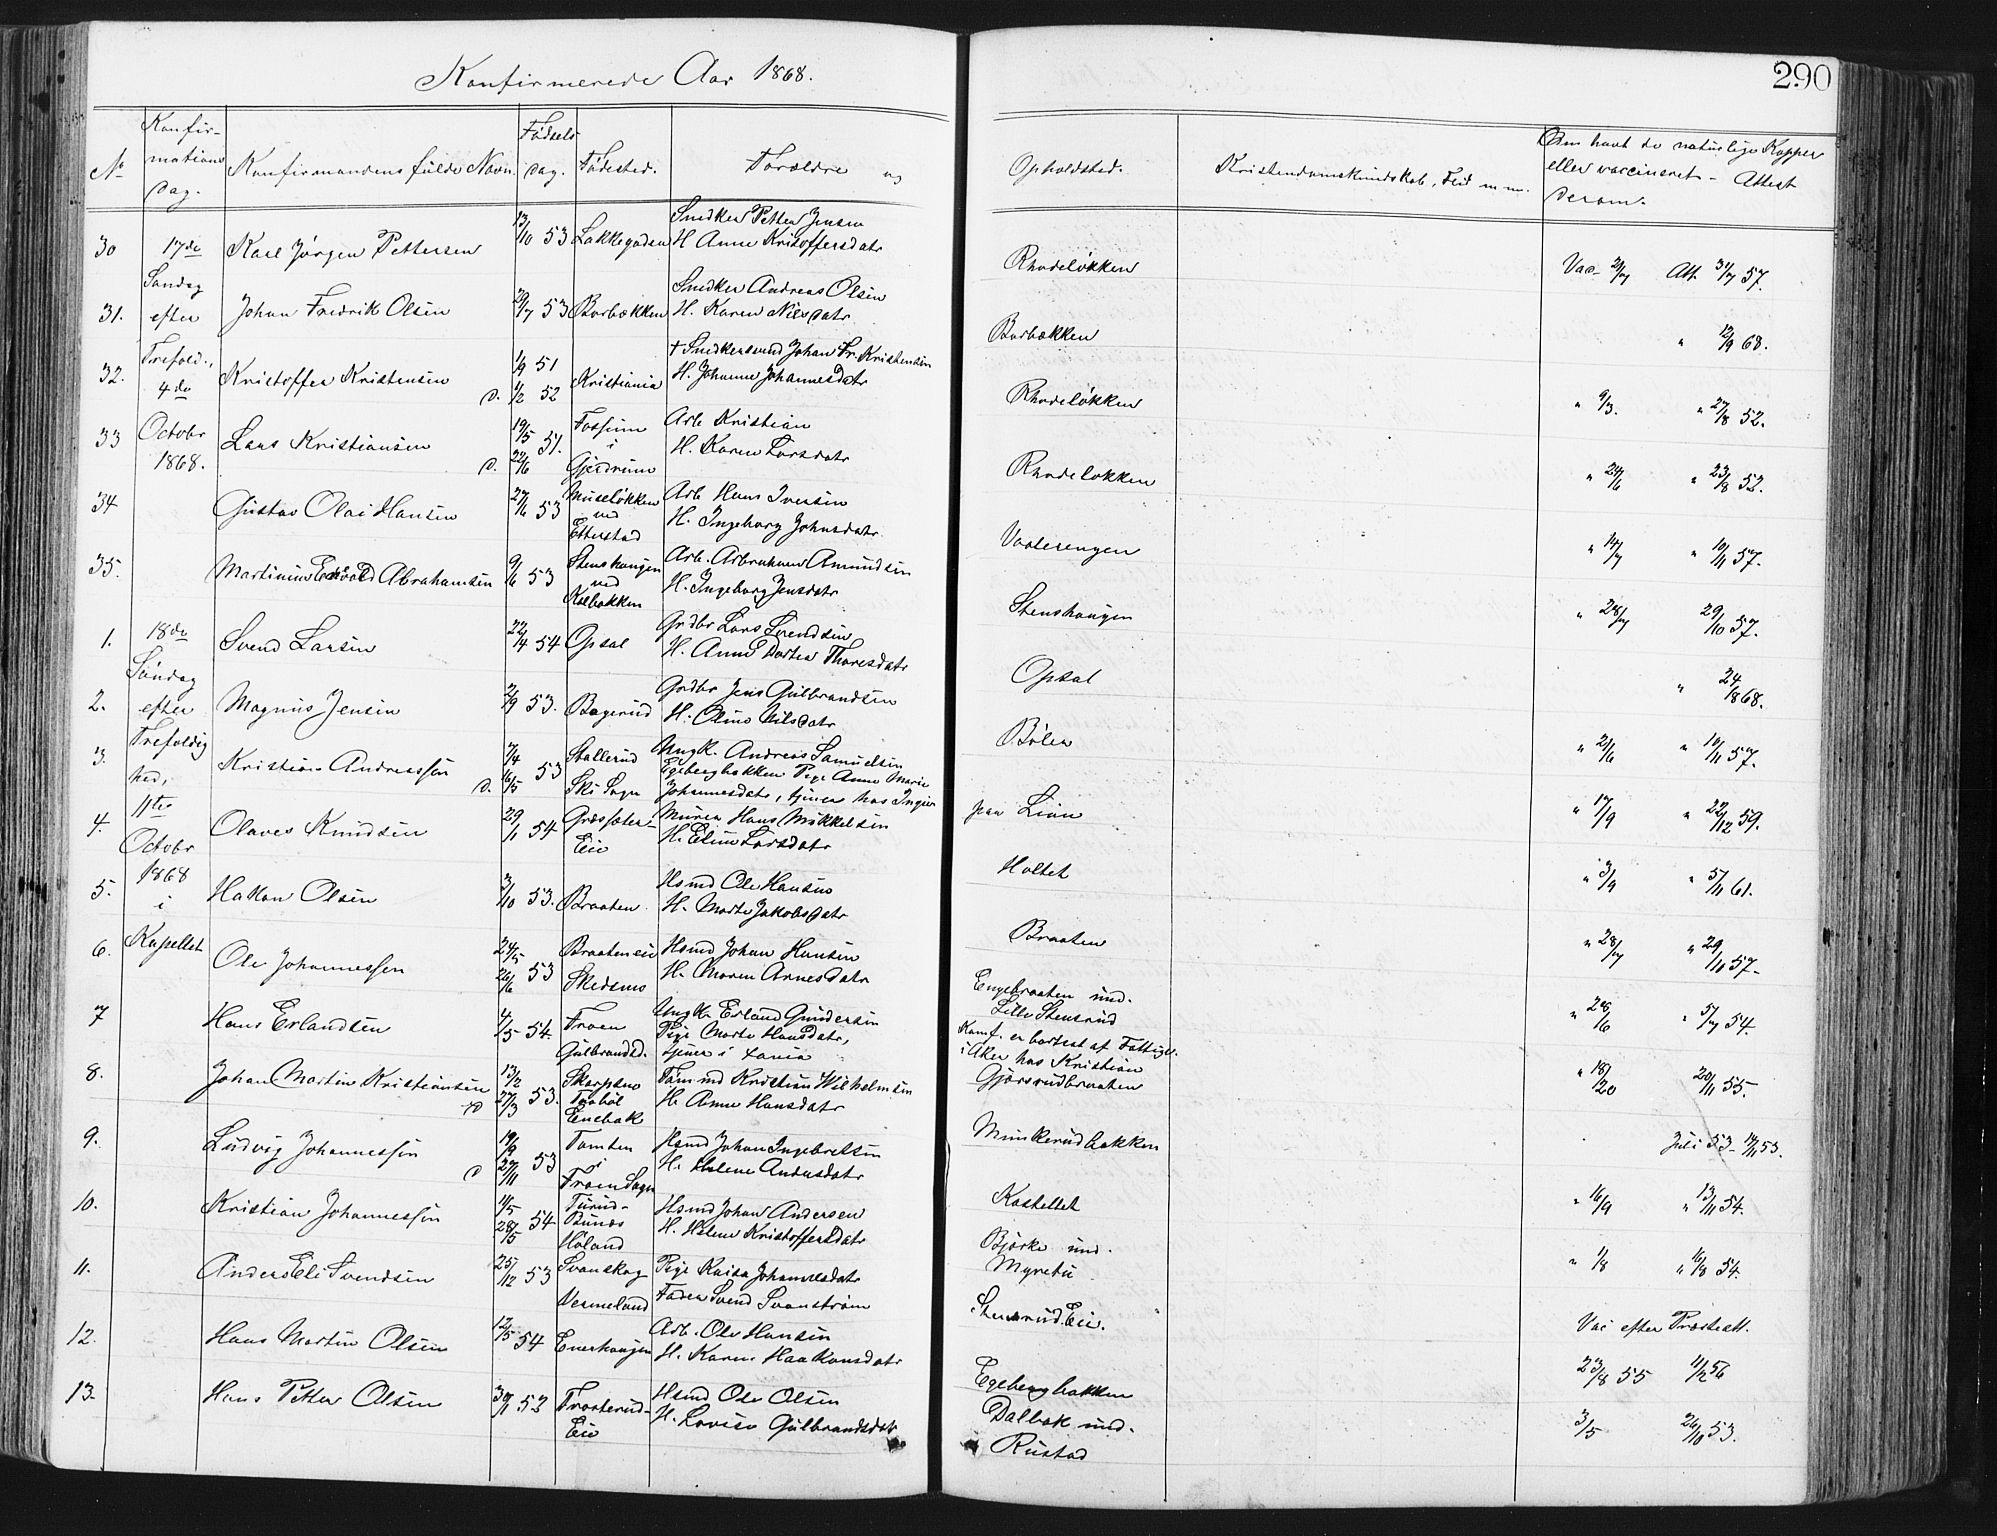 Konfirmerede Aar 1868.
290
No
Konfirmations Dag.
Konfirmandens fulde Navn.
Fødsels Dag.
Fødested.
Forældre og
Opholdsted.
Kristendomskundskab, Flid m.m.
Om havt de naturlige Kopper
eller vaccineret - Attest
derom.
17de Søndag efter Trefold., 4de Octobr 1868.
30 Karl Jörgen Pettersen 13/10 53 Lakkegaden Snedker Petter Jensen
H. Anne Kristoffersdatr Rhodeløkken Vac. 24/7 Att. 31/7 57.
31. Johan Fredrik Olsen 29/7 53 Borbækken Snedker Andreas Olsen
H. Karen Nilsdatr Borbækken " 12/9 68.
32. Kristoffer Kristensen 1/9 51 D. 1/2 52 Kristiania † Snedkersvend Johan Fr. Kristensen
H. Johanne Johannesdatr Rhodeløkken " 9/3. " 27/8 52.
33 Lars Kristiansen 19/5 51. D. 22/6 Fossum i Gjerdrum Arb Kristian
H. Karen Larsdatr Rhodeløkken " 24/6 " 23/8 52.
34 Gustav Olai Hansen 27/6 53 Museløkken ved Etterstad Arb Hans Iversen
H. Ingeborg Johnsdatr Vaalerengen " 14/7 " 10/11 57.
35. Martinius Edvard Abrahamsen 9/6 53 Stenshaugen ved Kalbakken Arb. Abraham Amundsen
H. Ingeborg Jensdatr Stenshaugen " 28/7 29/10 57.
18de Søndag efter Trefoldighed, 11te Octobr 1868 i Kapellet
1. Svend Larsen 22/4 54 Opsal Grdbr Lars Svendsen
H. Anne Dortea Thoresdatr Opsal " 24/8 68.
2. Magnus Jensen 2/9 53. Bogerud Grdbr Jens Gulbrandsen
H. Oline Nilsdatr Bøler " 21/6 " 10/11 57.
3. Kristian Andreassen 7/4 53 D. 16/5 Stallerud Ski Sogn Ungk. Andreas Samuelsen
Egebergbakken Pige Anne Marie
Johannesdatr, tjener hos Ingier paa Lian " 17/9 " 22/12 59.
4. Olaves Knudsen 29/1 54 Græssæter-Eie Murer Hans Mikkelsen
H. Eline Larsdatr Holtet " 3/9 " 5/11 61.
5. Hakon Olsen 3/10 53. Braaten Hsmd Ole Hansen
H. Marte Jakobsdatr Braaten " 28/7 " 29/10 57.
6. Ole Johannessen 24/5 53 26/6 Braateneie Skedsmo Hsmd Johan Hansen
H. Maren Arnesdatr Engebraaten und. Lille Stensrud " 26/6 " 5/7 54.
7 Hans Erlandsen 4/5 54. Froen Gulbrandsd. Ungk. Erland Gundersen
Pige Marte Hansdatr,
tjener i Xania Konf. er bortsat af Fattigv.
i Aker hos Kristian
Gjersrudbraaten " 18/20 20/11 55.
8. Johan Martin Kristiansen 13/2 53. D 27/3 Enebak Tømmd Kristian Wilhelmsen
H. Anne Hansdatr Munkerudbakken Juli 53 - 53.
9. Ludvig Johannessen 19/9 53 D 27/11 Tomten i Froen Sogn Hsmd Johan Ingebretsen
H. Helene Andersdatr Kastellet " 16/9 " 13/11 54.
10. Kristian Johannessen 11/5 54 28/5 Høland Hsmd Johan Andersen
H. Helene Kristoffersdatr Bjørke und. Myretu " 1/8 " 16/8 54.
11. Anders Eli Svendsen 25/12 53 Svanskog Vermeland Pige Kaisa Johannesdatr
Fader Svend Svanstrøm Stensrud Eie. Vac efter Præsteatt.
12. Hans Martin Olsen 12/5 54 Enerhaugen Arb. Ole Hansen
H. Karen Haakonsdatr Egebergbakken 23/8 55 11/2 56
13. Hans Petter Olsen 30/1 52 Trosterud-Eie Hsmd Ole Olsen
H. Lovise Gulbrandsdatr Dalbak und. Rustad 3/5 26/10 53.